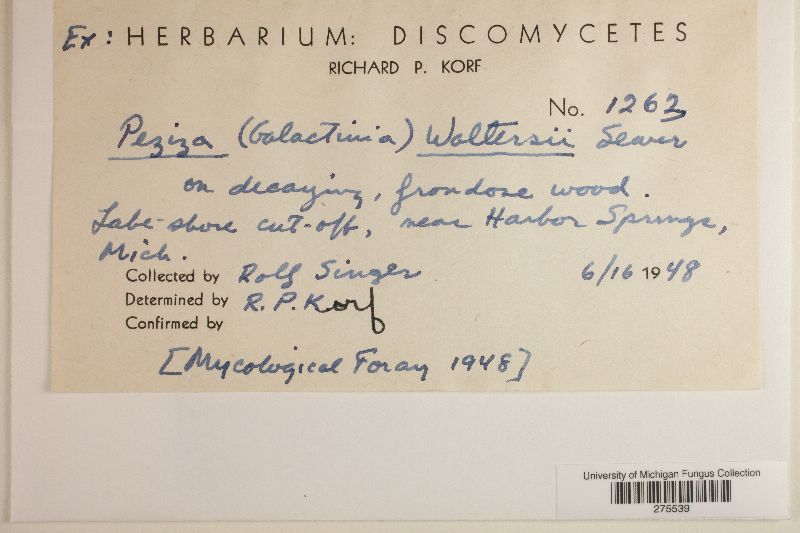 Ex: HERBARIUM: DISCOMYCETES
RICHARD P. KORF
No. 1263
Peziza (Galactinia) Waltersii Seaver
on decaying, frondose wood.
Lake-shore cut-off, near Harbor Springs,
Mich.
Collected by Rolf Singer 6/16 1948
Determined by R. P. Korf
Confirmed by
[Mycological Foray 1948]
University of Michigan Fungus Collection
275539